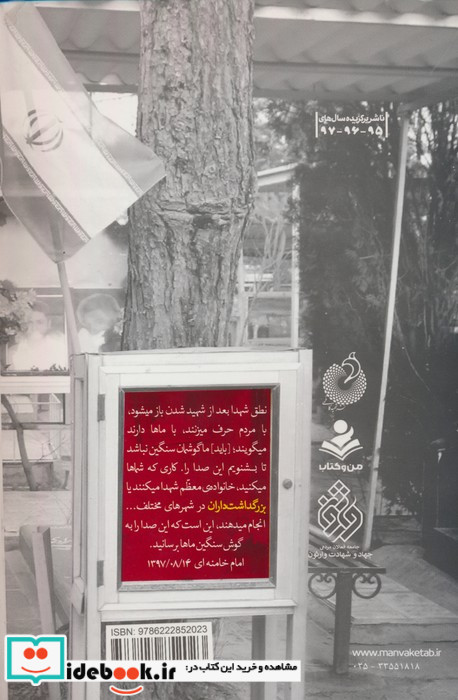 ناشر برگزیده سال‌های
۹۷-۹۶-۹۵
من و کتاب
جهاد و شهادت وارثون
نطق شهدا بعد از شهید شدن باز میشود،
با مردم حرف میزنند، با ماها دارند
میگویند؛ [باید] ما گوشمان سنگین نباشد
تا بشنویم این صدا را. کاری که شماها
میکنید، خانواده‌ی معظّم شهدا میکنند یا
بزرگداشت‌داران در شهرهای مختلف...
انجام میدهند، این است که این صدا را به
گوش سنگین ماها برسانید.
امام خامنه ای ۱۳۹۷/۰۸/۱۴
ISBN: 9786222852023
www.manvaketab.ir
۰۲۵ - ۳۳۵۵۱۸۱۸
مشاهده و خرید این کتاب در:
idebook.ir